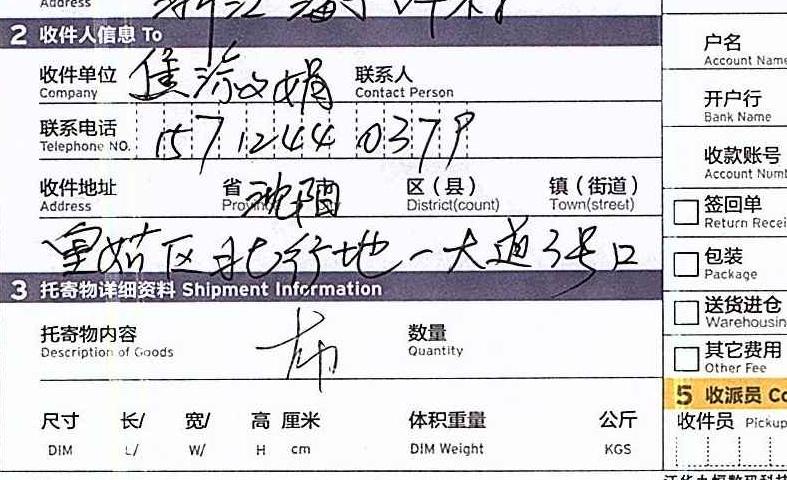 Address 浙江
2 收件人信息 To
收件单位 Company 联系人 Contact Person
联系电话 Telephone NO. 157 1244 0379
收件地址 Address 省 Province 沈阳 区(县) District(count) 镇(街道) Town(street)
皇姑区北行地一大道3号口
3 托寄物详细资料 Shipment Information
托寄物内容 Description of Goods 布 数量 Quantity
尺寸 长/ 宽/ 高 厘米 体积重量 公斤
DIM L/ W/ H cm DIM Weight KGS
户名
Account Name
开户行
Bank Name
收款账号
Account Numb
签回单
Return Recei
包装
Package
送货进仓
Warehousin
其它费用
Other Fee
5 收派员 Co
收件员 Pickup